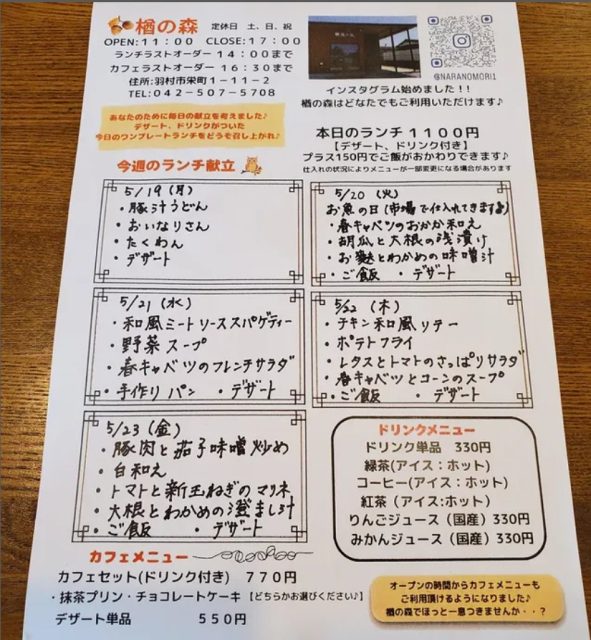 楢の森 定休日 土、日、祝
OPEN:11:00 CLOSE:17:00
ランチラストオーダー 14:00まで
カフェラストオーダー 16:30まで
住所:羽村市栄町1-11-2
TEL:042-507-5708
@NARANOMORI1
インスタグラム始めました!!
楢の森はどなたでもご利用いただけます♪
あなたのために毎日の献立を考えました♪
デザート、ドリンクがついた
今日のワンプレートランチをどうぞ召し上がれ♪
本日のランチ 1100円
【デザート、ドリンク付き】
プラス150円でご飯がおかわりできます♪
仕入れの状況によりメニューが一部変更になる場合があります
今週のランチ献立
5/19(月)
・豚汁うどん
・おいなりさん
・たくわん
・デザート
5/20(火)
お魚の日(市場で仕入れてきます♪)
・春キャベツのおかか和え
・胡瓜と大根の浅漬け
・お麩とわかめの味噌汁
・ご飯 ・デザート
5/21(水)
・和風ミートソーススパゲティー
・野菜スープ
・春キャベツのフレンチサラダ
・手作りパン ・デザート
5/22(木)
・チキン和風ソテー
・ポテトフライ
・レタスとトマトのさっぱりサラダ
・春キャベツとコーンのスープ
・ご飯 ・デザート
5/23(金)
・豚肉と茄子味噌炒め
・白和え
・トマトと新玉ねぎのマリネ
・大根とわかめの澄まし汁
・ご飯 ・デザート
ドリンクメニュー
ドリンク単品 330円
緑茶(アイス:ホット)
コーヒー(アイス:ホット)
紅茶(アイス:ホット)
りんごジュース(国産)330円
みかんジュース(国産)330円
カフェメニュー
カフェセット(ドリンク付き) 770円
・抹茶プリン・チョコレートケーキ【どちらかお選びください♪】
デザート単品 550円
オープンの時間からカフェメニューも
ご利用頂けるようになりました♪
楢の森でほっと一息つきませんか・・?